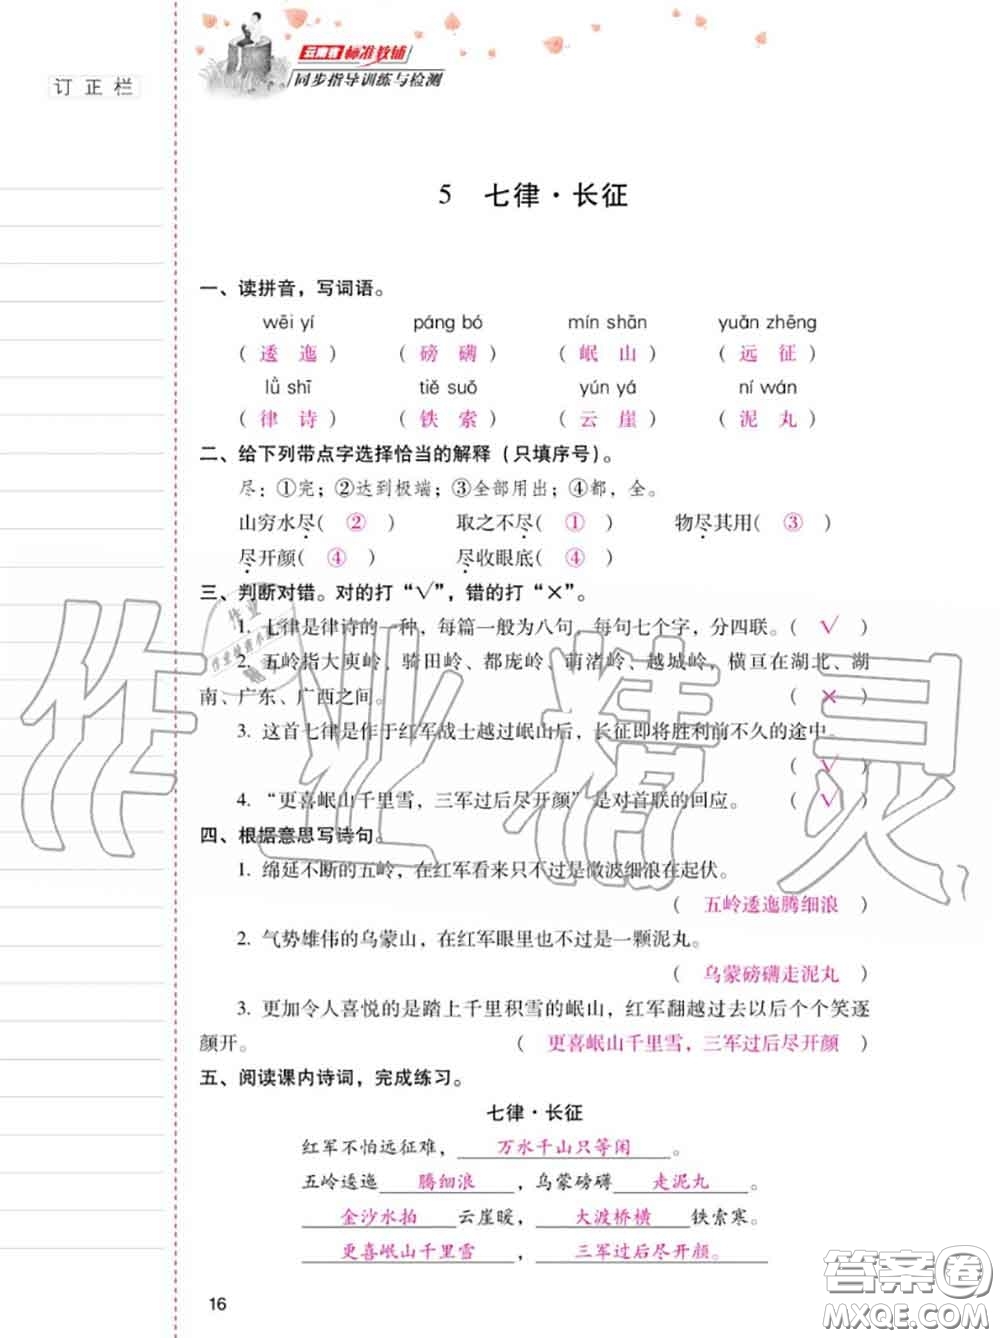 云南省标准教辅
同步指导训练与检测
订正栏
5 七律·长征
一、读拼音，写词语。
wēi yí páng bó mín shān yuǎn zhēng
（ 逶 迤 ）（ 磅 礴 ）（ 岷 山 ）（ 远 征 ）
lǜ shī tiě suǒ yún yá ní wán
（ 律 诗 ）（ 铁 索 ）（ 云 崖 ）（ 泥 丸 ）
二、给下列带点字选择恰当的解释（只填序号）。
尽：①完；②达到极端；③全部用出；④都，全。
山穷水尽（ ② ） 取之不尽（ ① ） 物尽其用（ ③ ）
尽开颜（ ④ ） 尽收眼底（ ④ ）
三、判断对错。对的打“√”，错的打“×”。
1. 七律是律诗的一种，每篇一般为八句，每句七个字，分四联。（ √ ）
2. 五岭指大庾岭、骑田岭、都庞岭、萌渚岭、越城岭，横亘在湖北、湖
南、广东、广西之间。 （ × ）
3. 这首七律是作于红军战士越过岷山后，长征即将胜利前不久的途中。
（ √ ）
4. “更喜岷山千里雪，三军过后尽开颜”是对首联的回应。 （ √ ）
四、根据意思写诗句。
1. 绵延不断的五岭，在红军看来只不过是微波细浪在起伏。
（ 五岭逶迤腾细浪 ）
2. 气势雄伟的乌蒙山，在红军眼里也不过是一颗泥丸。
（ 乌蒙磅礴走泥丸 ）
3. 更加令人喜悦的是踏上千里积雪的岷山，红军翻越过去以后个个笑逐
颜开。 （ 更喜岷山千里雪，三军过后尽开颜 ）
五、阅读课内诗词，完成练习。
七律·长征
红军不怕远征难，万水千山只等闲。
五岭逶迤腾细浪，乌蒙磅礴走泥丸。
金沙水拍云崖暖，大渡桥横铁索寒。
更喜岷山千里雪，三军过后尽开颜。
16
作业精灵
答案圈
MXQE.COM